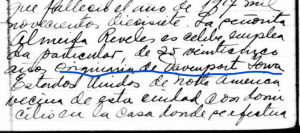 que falleció el año de 1917 mil
novecientos diecisiete. La presunta
Almeida Reveles es célibe, emplea
da particular de 25 veinticinco
años, originaria de Davenport Iowa
Estados Unidos de Norte America
vecina de esta ciudad con domi
cilio en la casa donde